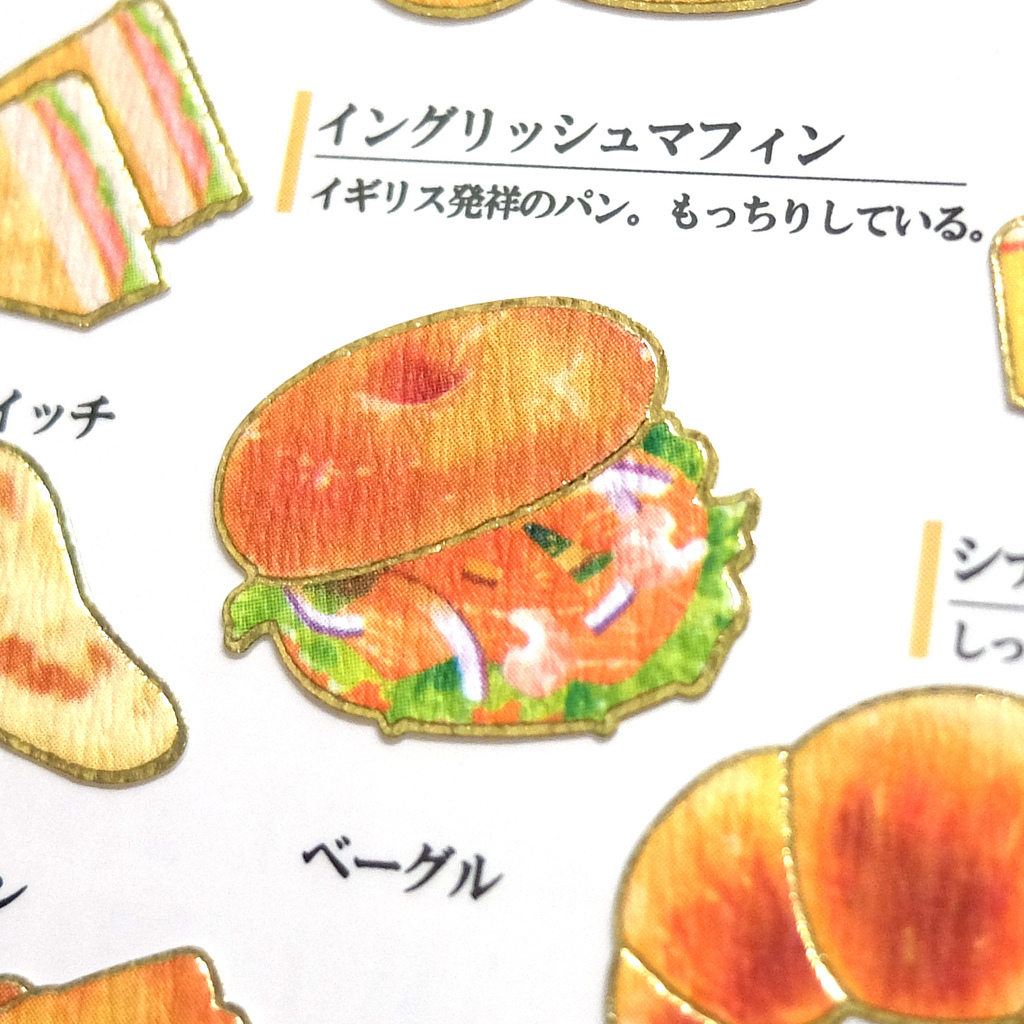 イングリッシュマフィン
イギリス発祥のパン。もっちりしている。
イッチ
シナ
しっ
ベーグル
ン